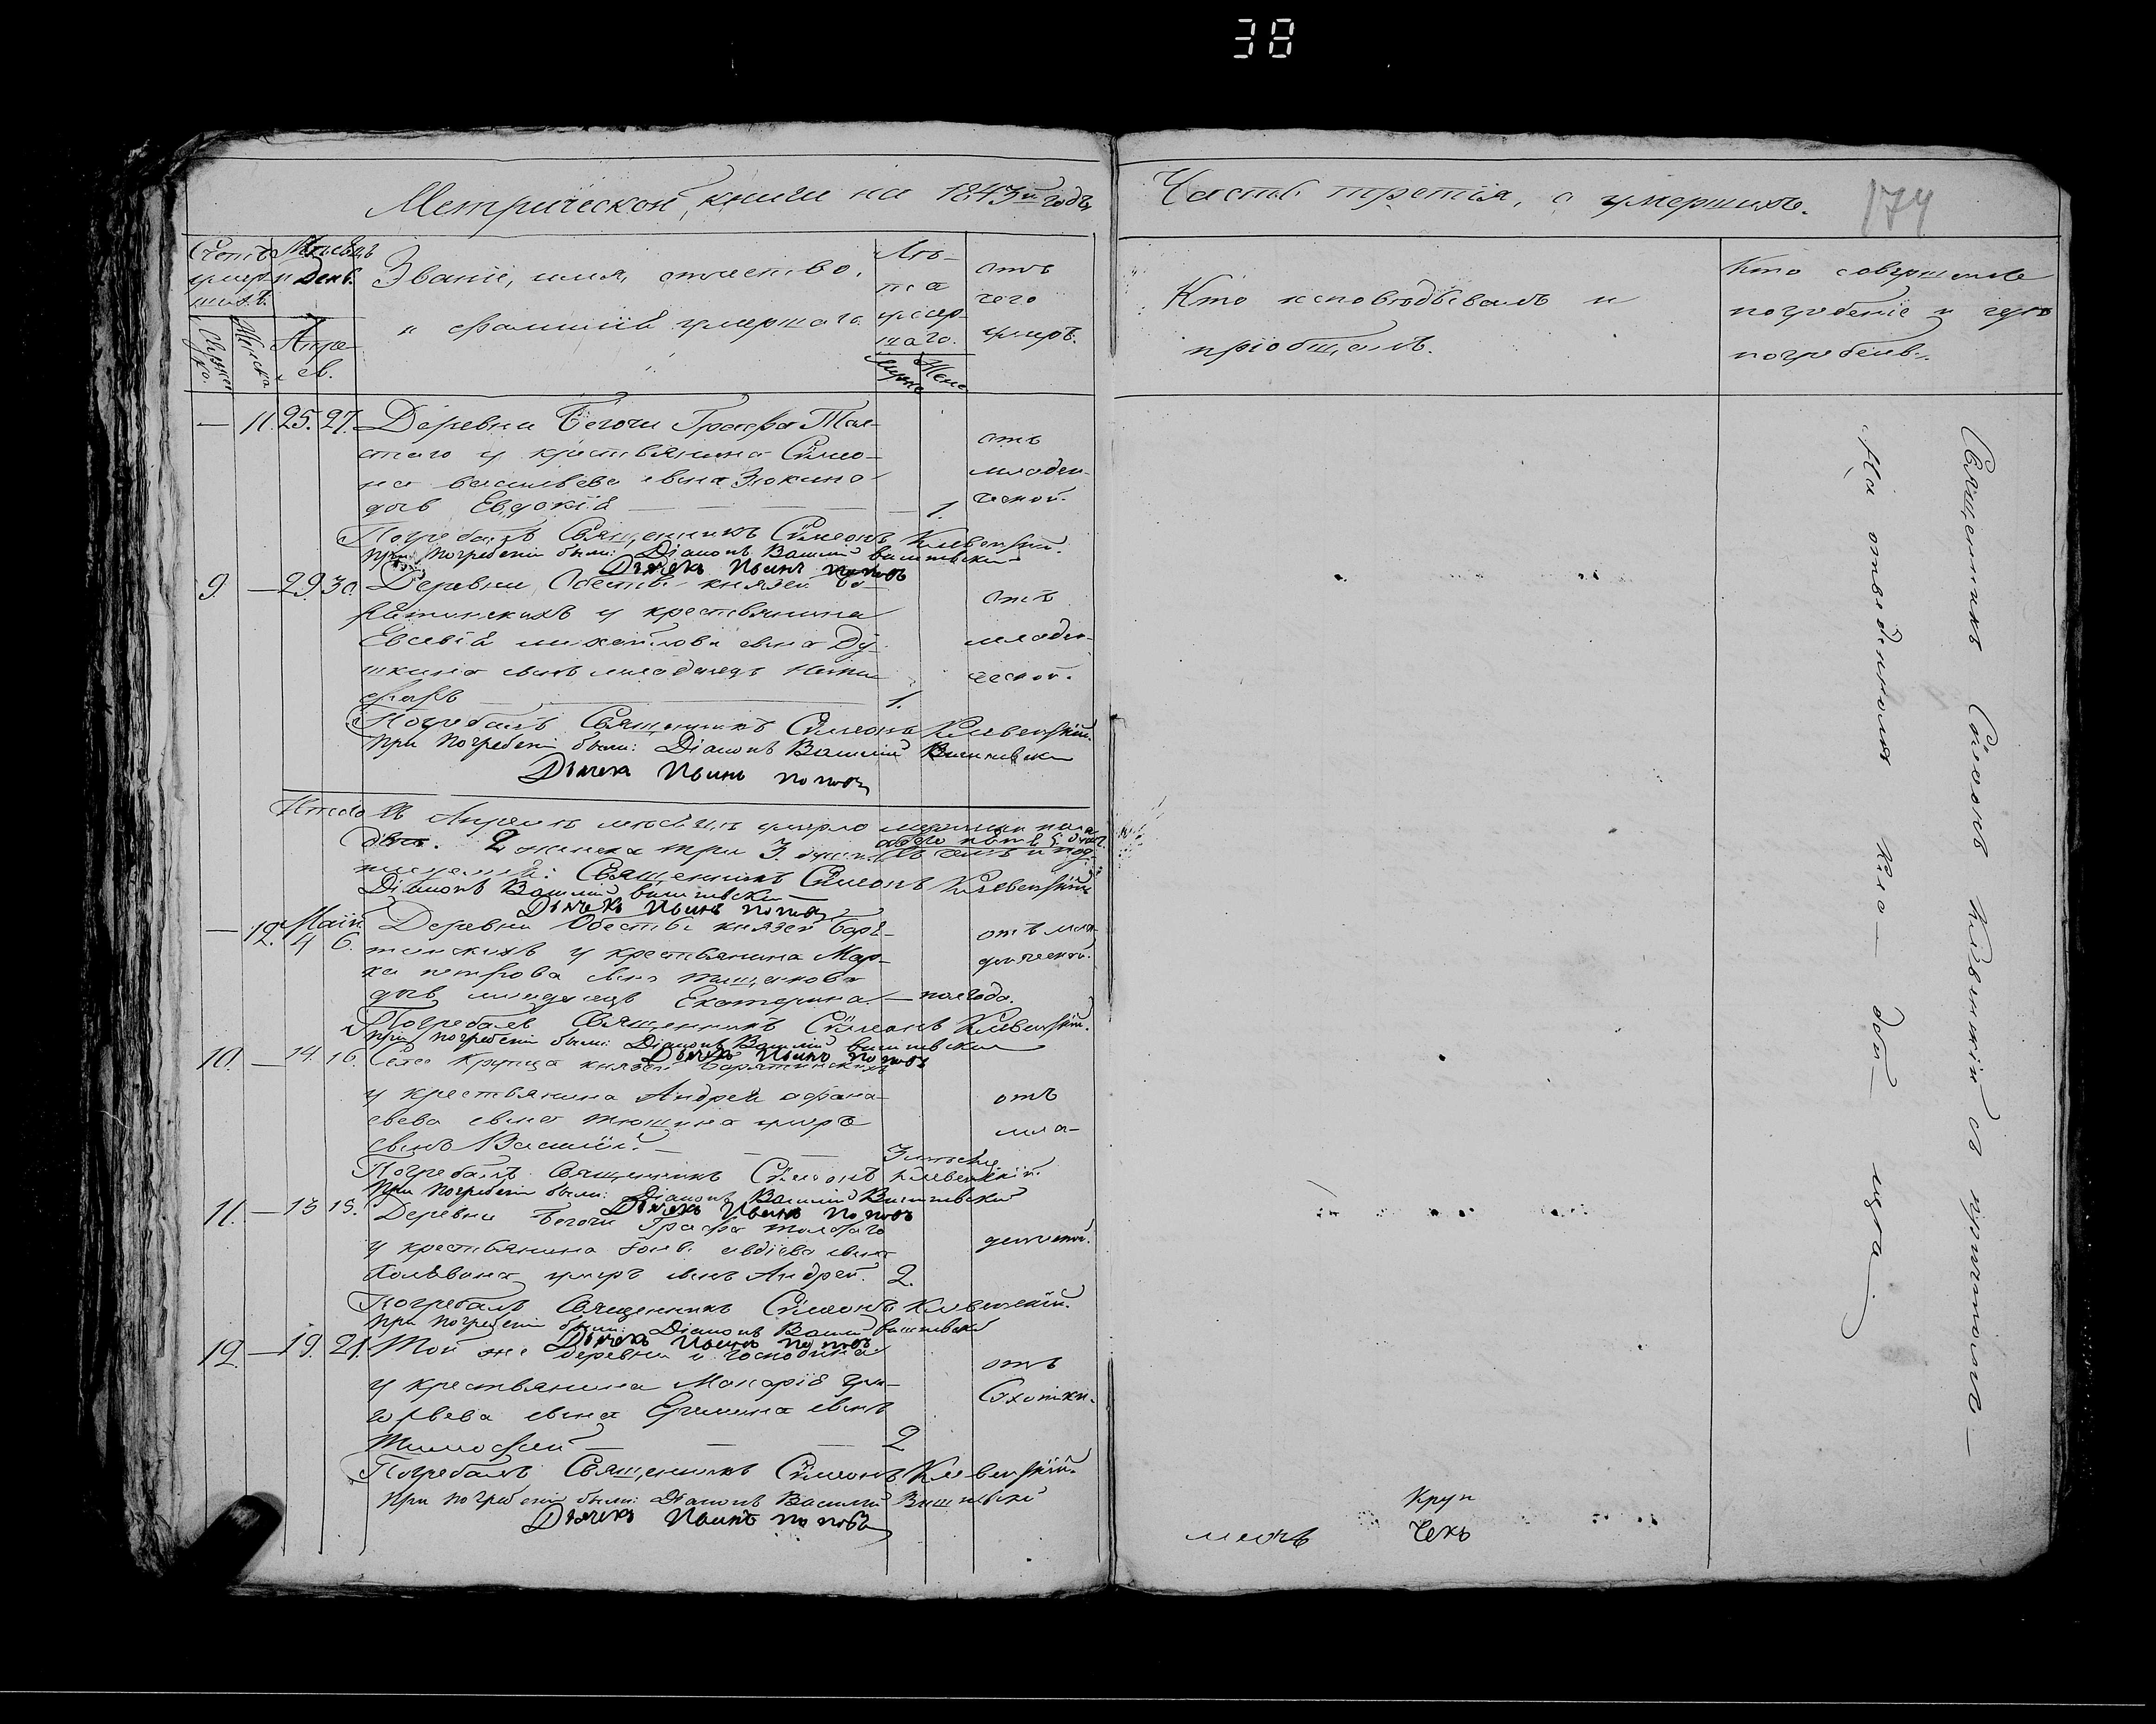 38
Метрической книги на 1843й годъ,
Часть третія, о умершихъ.
174
Счетъ умер шихъ.
Мѣсяцъ и день.
Званіе, имя, отчество,
и фамилія умершаго.
Лѣ-
та
умер-
шаго.
отъ
чего
умеръ.
Мужес ка.
Женска
Апре-
ев.
Муже
Жене
Кто исповѣдывалъ и
пріобщалъ.
Кто совершалъ
погребеніе и гдѣ
погребенъ.
— 11. 25. 27. Деревни Бегочи Графа Тол-
стаго у крестьянина Сѵмео-
на Васильева сына Зюкина
дочь Евдокія — 1.
отъ
младен-
ческой.
Погребалъ Священникъ Сѵмеонъ Клевенскій.
При погребеніи были: Діаконъ Василій Вишневскій
Дьячекъ Іоаннъ Поповъ
9. — 29. 30. Деревни Обесты князей Ба-
рятинскихъ у крестьянина
Евсевія михайлова сына Ду-
шкина сынъ младенецъ Ники-
форъ — 1.
отъ
младен-
ческой.
Погребалъ Священникъ Сѵмеонъ Клевенскій.
При погребеніи были: Діаконъ Василій Вишневскій
Дьячекъ Іоаннъ Поповъ
Итого въ Апрелѣ мѣсяцѣ умерло мужеска пола
два. 2 женска три 3. обоего пять 5 душъ.
Священникъ Сѵмеонъ Клевенскій
Діаконъ Василій Вишневскій
Дьячекъ Іоаннъ Поповъ
Маій
— 12. 4 6. Деревни Обесты князей Баря-
тинскихъ у крестьянина Мар-
ка петрова сына
дочь младенецъ Екатерина — полгода.
отъ мла-
денческой.
Погребалъ Священникъ Сѵмеонъ Клевенскій.
При погребеніи были: Діаконъ Василій Вишневскій
Дьячекъ Іоаннъ Поповъ
10. — 14. 16. Села Крупца князей Барятинскихъ
у крестьянина Андрея афана-
сьева сына тюшина умеръ
сынъ Василій. —
отъ
мла-
Погребалъ Священникъ Сѵмеонъ Клевенскій.
При погребеніи были: Діаконъ Василій Вишневскій
Дьячекъ Іоаннъ Поповъ
11. — 13 15. Деревни Бегочи Графа толстаго
у крестьянина авдіева сына
умеръ сынъ Андрей. 2.
денческой.
Погребалъ Священникъ Сѵмеонъ Клевенскій.
При погребеніи были: Діаконъ Василій Вишневскій
Дьячекъ Іоаннъ Поповъ
12. — 19. 21. Той же деревни и господина
у крестьянина Макарія Гри-
горьева сына Еремина сынъ
Тимофей — 2
отъ
Сухотки.
Погребалъ Священникъ Сѵмеонъ Клевенскій.
При погребеніи были: Діаконъ Василій Вишневскій
Дьячекъ Іоаннъ Поповъ
Священникъ Сѵмеонъ Клевенскій съ причтомъ —
На отведенномъ
Круп
чекъ